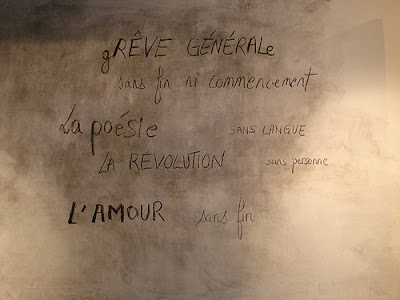 gRÊVE GÉNÉRALe
sans fin ni commencement
La poésie SANS LANGUE
LA RÉVOLUTION sans personne
L'AMOUR sans fin